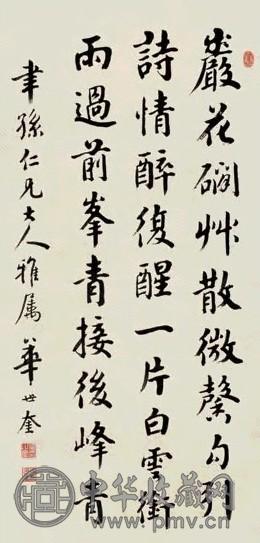 巖花磵艸散微馨勾引
詩情醉復醒一片白雲衝
雨過前峯青接後峰青
聿孫仁兄大人雅属 華世奎
中华收藏网
www.pmv.cn